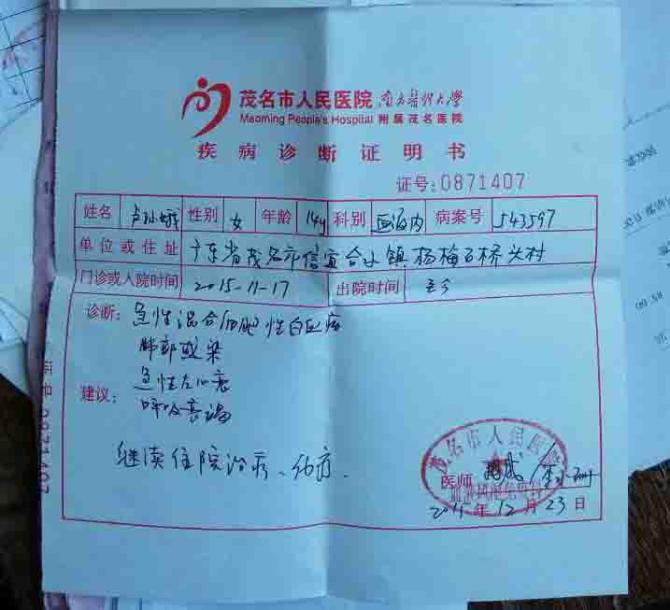 茂名市人民医院 南方医科大学
Maoming People's Hospital 附属茂名医院
疾病诊断证明书
证号:0871407
姓名 性别 女 年龄 14y 科别 病案号 543597
单位或住址 广东省茂名市信宜合水镇杨梅石桥头村
门诊或入院时间 2015-11-17 出院时间 至今
诊断: 急性混合细胞性白血病
肺部感染
急性左心衰
建议: 呼吸衰竭
继续住院治疗、化疗.
茂名市人民医院
医师
2015年12月23日
证号0871407